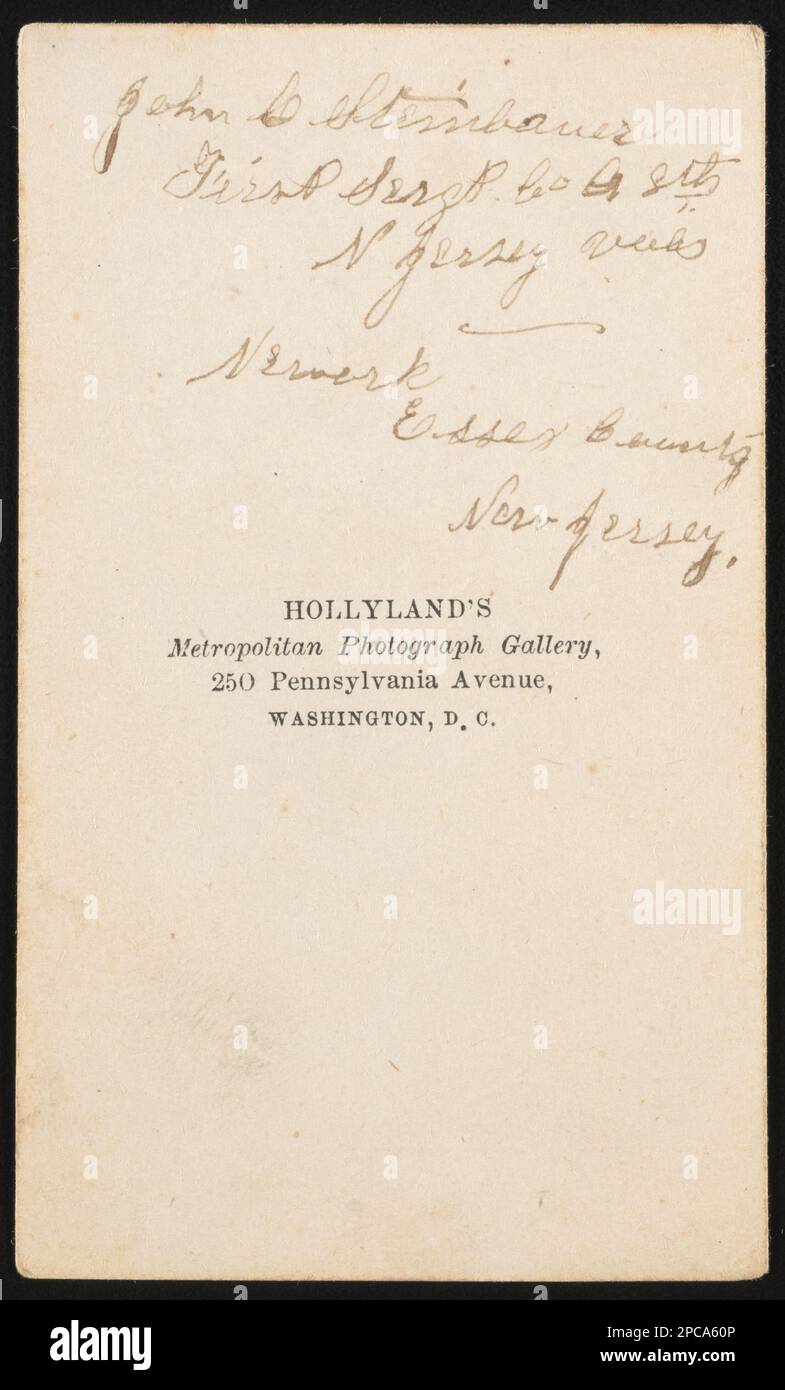 John C Steinbauer
First Sergt. Co A 8th
N Jersey Vols
Newark
Essex County
New Jersey.
HOLLYLAND'S
Metropolitan Photograph Gallery,
250 Pennsylvania Avenue,
WASHINGTON, D. C.
alamy
alamy
alamy
Image ID: 2PCA60P
www.alamy.com